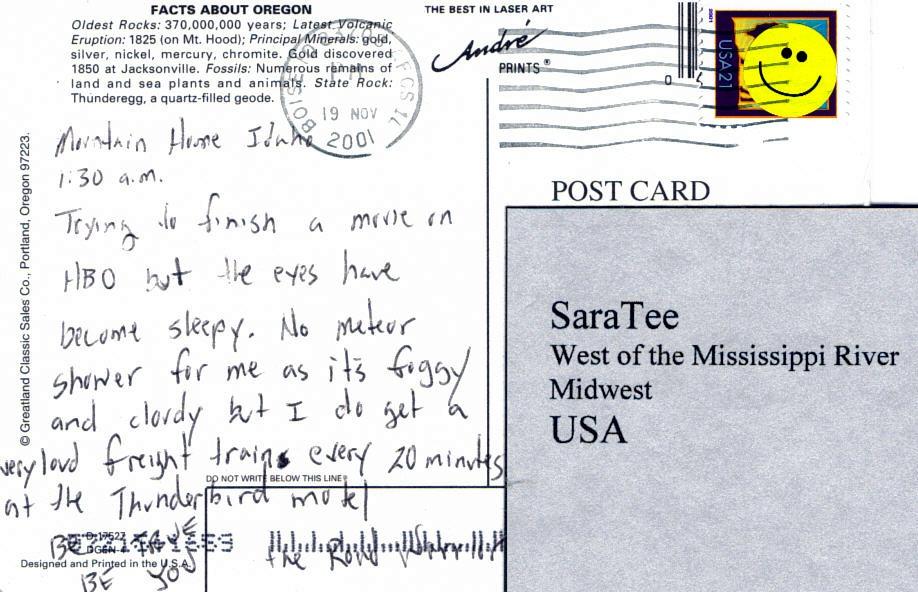 FACTS ABOUT OREGON
Oldest Rocks: 370,000,000 years; Latest Volcanic
Eruption: 1825 (on Mt. Hood); Principal Minerals: gold,
silver, nickel, mercury, chromite. Gold discovered
1850 at Jacksonville. Fossils: Numerous remains of
land and sea plants and animals. State Rock:
Thunderegg, a quartz-filled geode.
THE BEST IN LASER ART
André
PRINTS®
BOISE
19 NOV
2001
2001
USA21
© Greatland Classic Sales Co., Portland, Oregon 97223.
Mountain Home Idaho
1:30 a.m.
Trying to finish a movie on
HBO but the eyes have
become sleepy. No meteor
shower for me as it's foggy
and cloudy but I do get a
very loud freight trains every 20 minutes
at the Thunderbird motel
BE TRUE
BE YOU
the Road
POST CARD
SaraTee
West of the Mississippi River
Midwest
USA
DO NOT WRITE BELOW THIS LINE
D-17527
DGEN-4
Designed and Printed in the U.S.A.